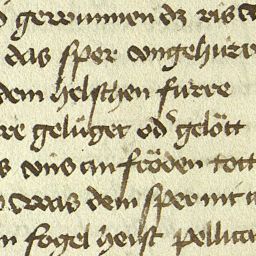 gerunnen dz ris
das sper vngehurr
dem helschen furre
gelüget od' gelött
vns an fröden tott
was dem sper nit
fogel heist pellica